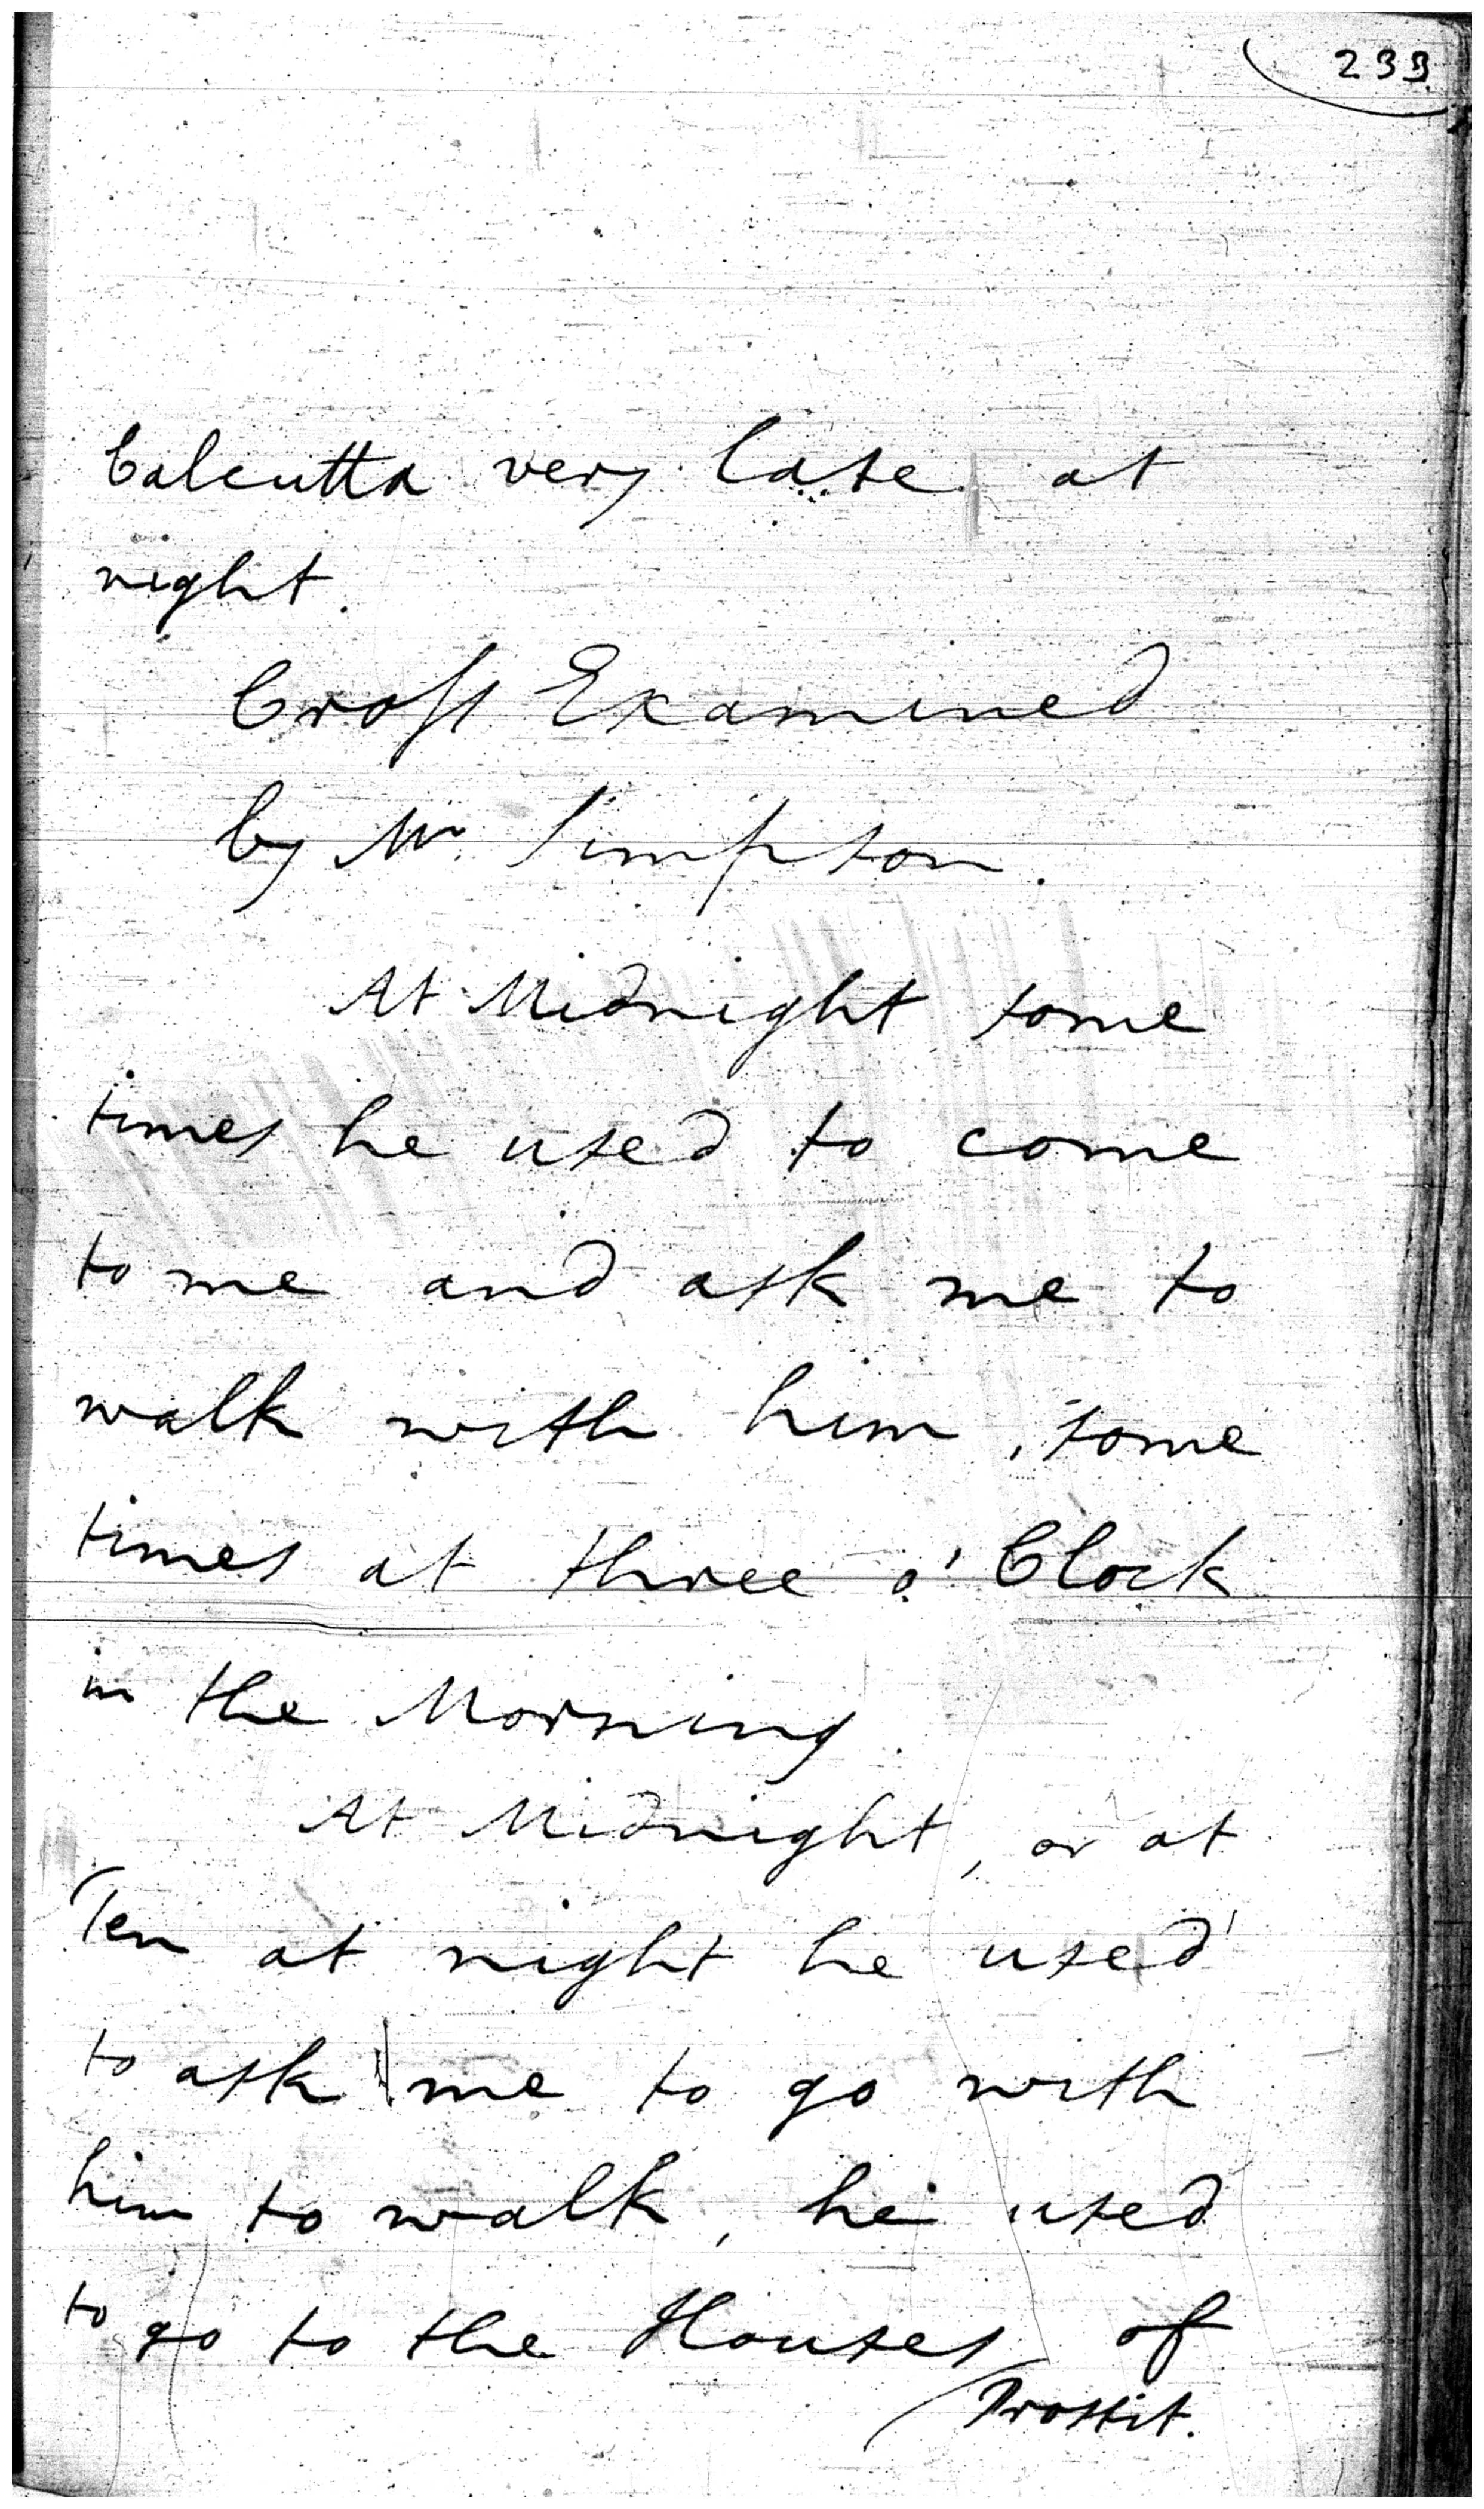 233
Calcutta very late at
night.
Cross Examined
by Mr. Simpson.
At Midnight some
times he used to come
to me and ask me to
walk with him, some
times at three o'Clock
in the Morning.
At Midnight, or at
Ten at night he used
to ask me to go with
him to walk, he used
to go to the Houses of
Prostit.